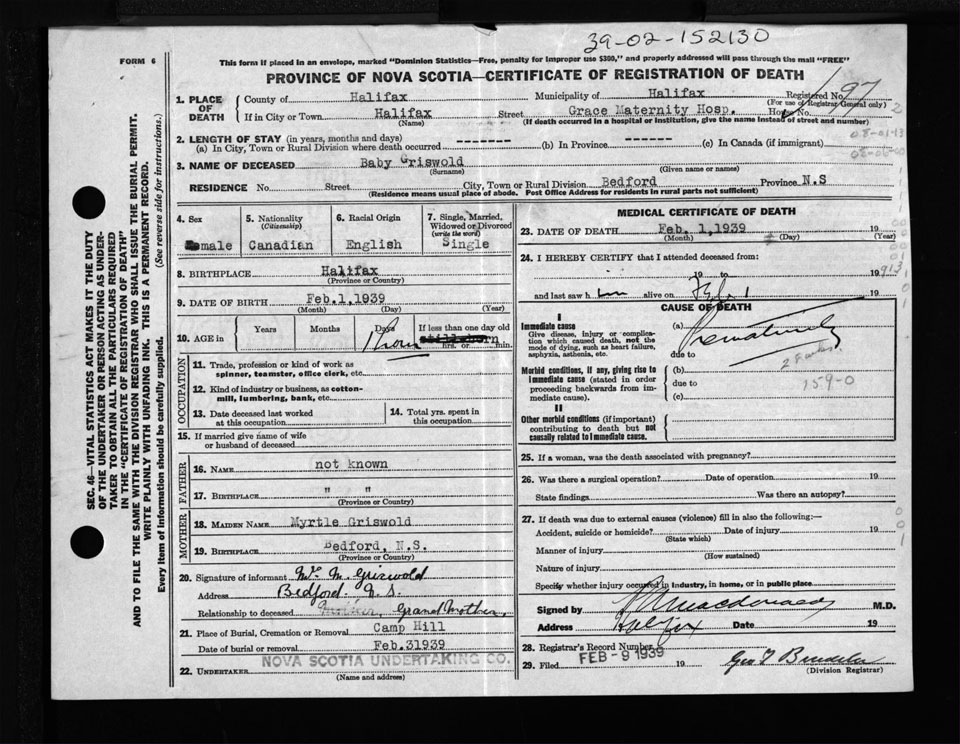 39-02-152130
FORM 6
This form if placed in an envelope, marked "Dominion Statistics—Free, penalty for improper use $300," and properly addressed will pass through the mail "FREE"
PROVINCE OF NOVA SCOTIA—CERTIFICATE OF REGISTRATION OF DEATH
1. PLACE OF DEATH
County of Halifax Municipality of Halifax Registered No. 197
(For use of Registrar General only)
If in City or Town Halifax Street Grace Maternity Hosp. House No.
(Name) (If death occurred in a hospital or institution, give the name instead of street and number)
2. LENGTH OF STAY (in years, months and days)
(a) In City, Town or Rural Division where death occurred -------- (b) In Province -------- (c) In Canada (if immigrant)
3. NAME OF DECEASED Baby Griswold
(Surname) (Given name or names)
RESIDENCE No. Street City, Town or Rural Division Bedford Province N.S
(Residence means usual place of abode. Post Office Address for residents in rural parts not sufficient)
4. Sex male
5. Nationality (Citizenship) Canadian
6. Racial Origin English
7. Single, Married, Widowed or Divorced (write the word) Single
8. BIRTHPLACE Halifax
(Province or Country)
9. DATE OF BIRTH Feb.1,1939
(Month) (Day) (Year)
10. AGE in Years Months Days If less than one day old
1 hour hrs. or min.
OCCUPATION
11. Trade, profession or kind of work as spinner, teamster, office clerk, etc.
12. Kind of industry or business, as cotton-mill, lumbering, bank, etc.
13. Date deceased last worked at this occupation
14. Total yrs. spent in this occupation
15. If married give name of wife or husband of deceased
FATHER
16. NAME not known
17. BIRTHPLACE " "
(Province or Country)
MOTHER
18. MAIDEN NAME Myrtle Griswold
19. BIRTHPLACE Bedford, N.S.
(Province or Country)
20. Signature of informant Mrs M. Griswold
Address Bedford. N. S.
Relationship to deceased Grand Mother.
21. Place of Burial, Cremation or Removal Camp Hill
Date of burial or removal Feb.31939
22. UNDERTAKER NOVA SCOTIA UNDERTAKING CO.
(Name and address)
MEDICAL CERTIFICATE OF DEATH
23. DATE OF DEATH Feb. 1,1939 19
(Month) (Day) (Year)
24. I HEREBY CERTIFY that I attended deceased from:
19 to 19
and last saw h im alive on Feb 1 19
CAUSE OF DEATH
I
Immediate cause
Give disease, injury or complication which caused death, not the mode of dying, such as heart failure, asphyxia, asthenia, etc.
(a) Prematurity
due to
Morbid conditions, if any, giving rise to immediate cause (stated in order proceeding backwards from immediate cause).
(b)
due to 159-0
(c)
II
Other morbid conditions (if important) contributing to death but not causally related to immediate cause.
25. If a woman, was the death associated with pregnancy?
26. Was there a surgical operation? Date of operation 19
State findings Was there an autopsy?
27. If death was due to external causes (violence) fill in also the following:—
Accident, suicide or homicide? Date of injury 19
(State which)
Manner of injury
(How sustained)
Nature of injury
Specify whether injury occurred in industry, in home, or in public place
Signed by Macdonald M.D.
Address Halifax Date 19
28. Registrar's Record Number
29. Filed FEB - 9 1939 19
(Division Registrar)
SEC. 46—VITAL STATISTICS ACT MAKES IT THE DUTY
OF THE UNDERTAKER OR PERSON ACTING AS UNDER-
TAKER TO OBTAIN ALL THE PARTICULARS REQUIRED
IN THE "CERTIFICATE OF REGISTRATION OF DEATH"
AND TO FILE THE SAME WITH THE DIVISION REGISTRAR WHO SHALL ISSUE THE BURIAL PERMIT.
WRITE PLAINLY WITH UNFADING INK. THIS IS A PERMANENT RECORD.
Every item of information should be carefully supplied. (See reverse side for instructions.)